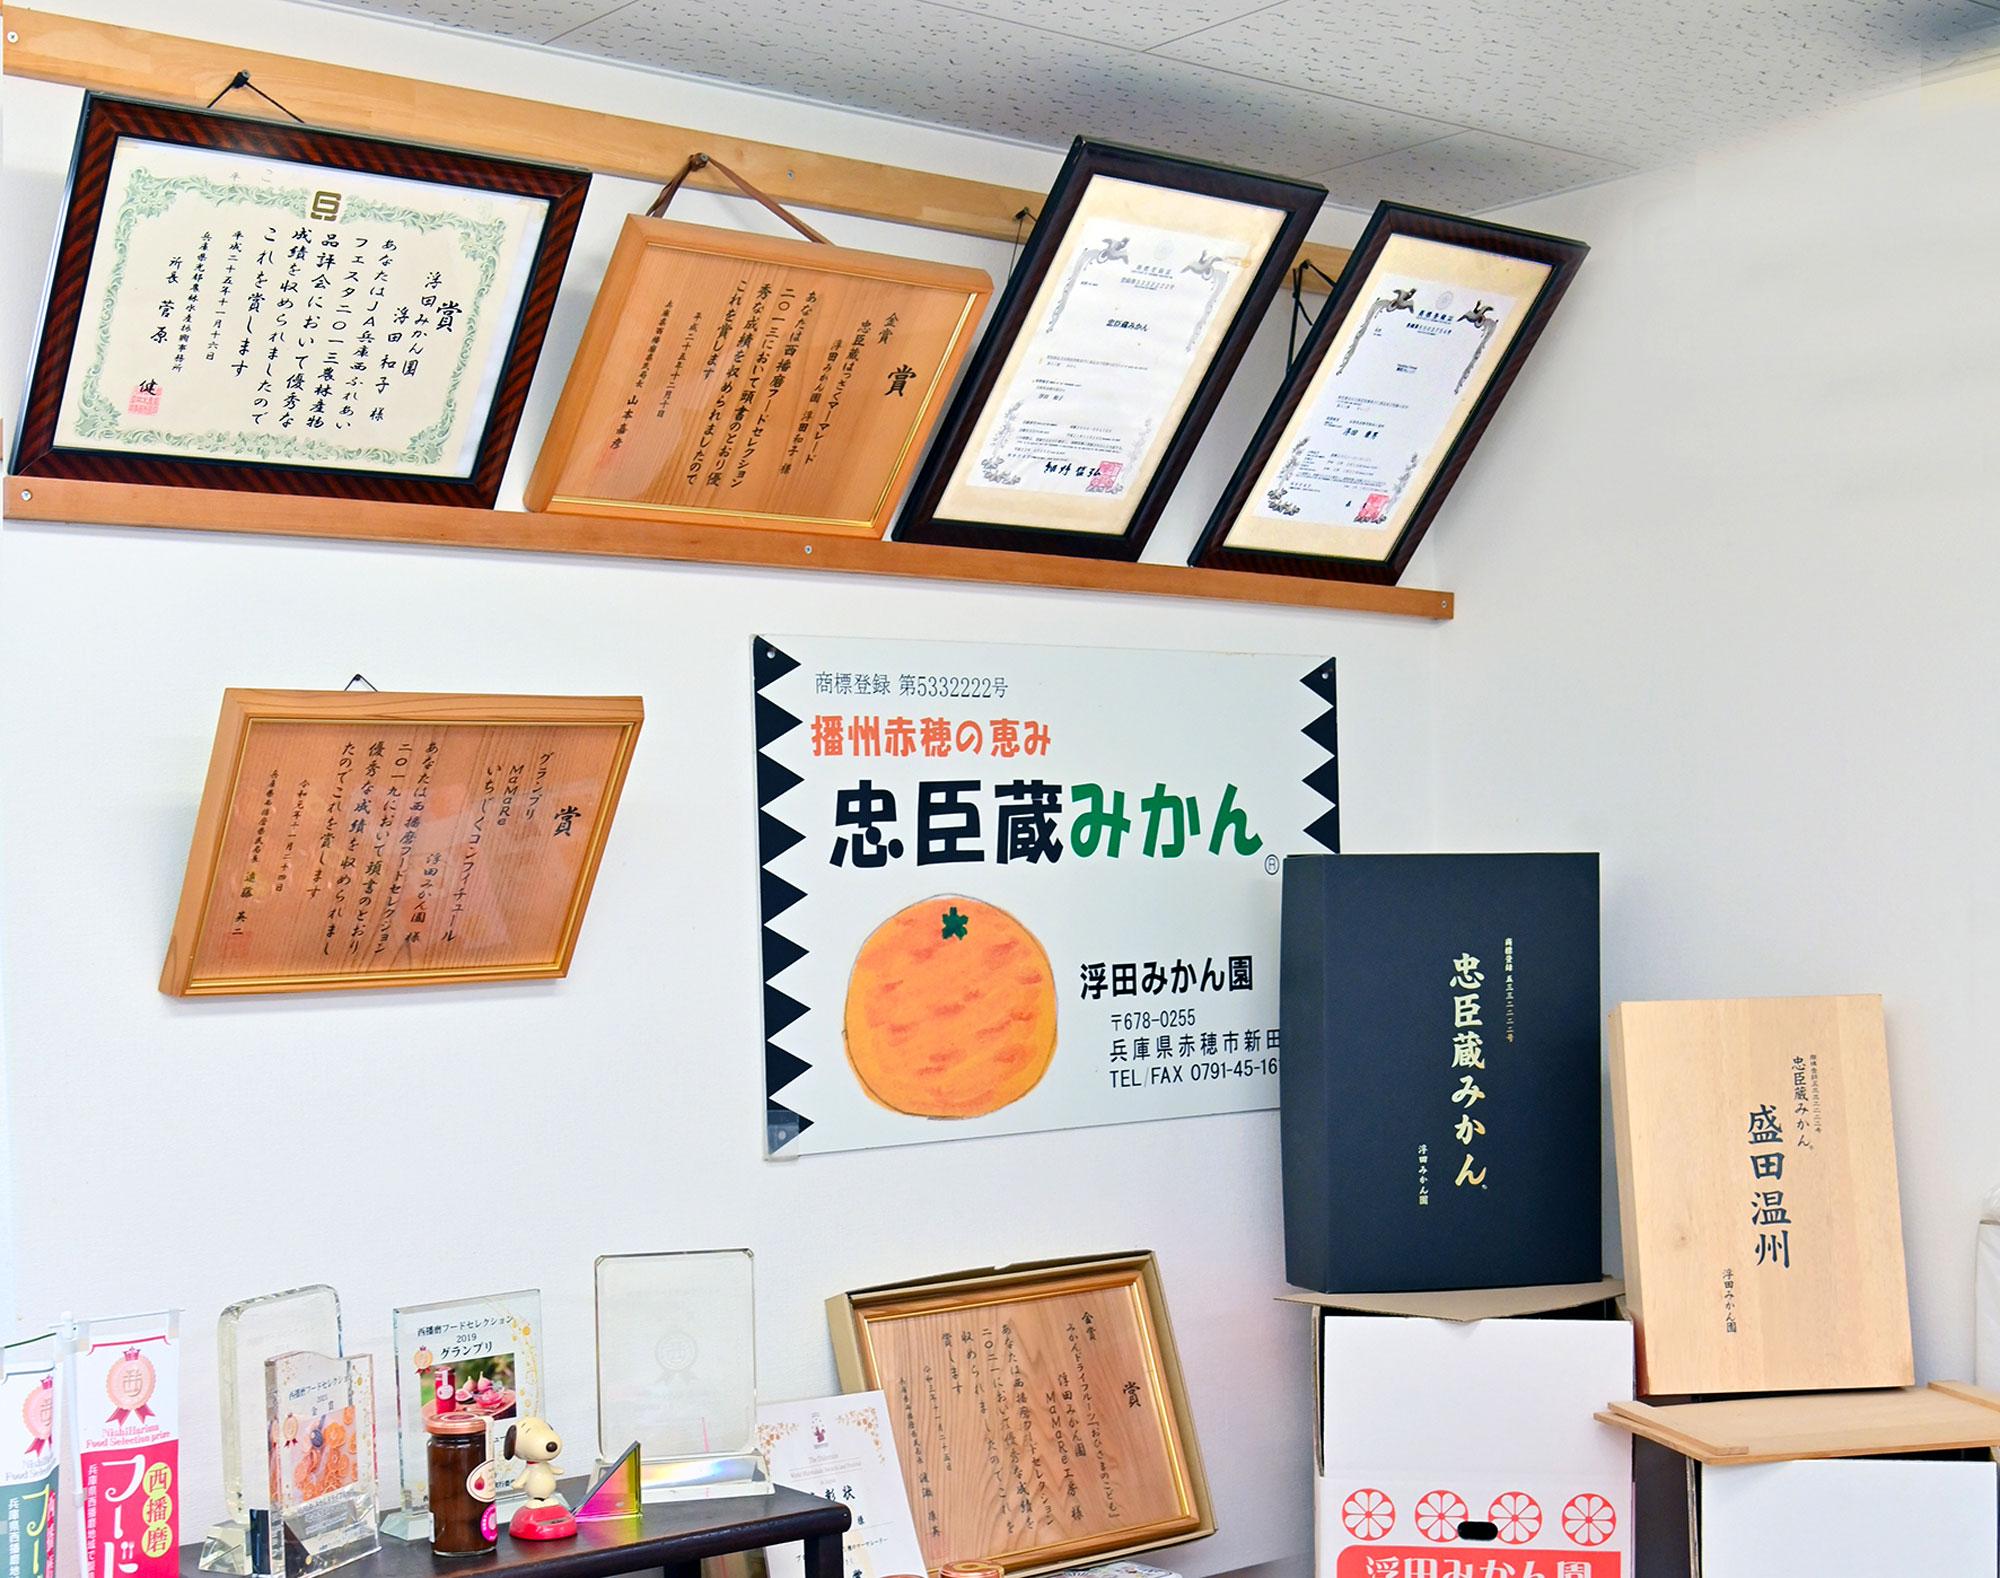 賞
浮田みかん園
浮田和子 様
あなたはJA兵庫西ふれあい
フェスタ二〇一三農林産物
品評会において優秀な
成績を収められましたので
これを賞します
平成二十五年十一月十六日
兵庫県光都農林水産振興事務所
所長 菅原 健
賞
金賞
忠臣蔵はっさくマーマレード
浮田みかん園 浮田和子 様
あなたは西播磨フードセレクション
二〇一三において頭書のとおり優
秀な成績を収められましたので
これを賞します
平成二十五年十二月十日
兵庫県西播磨県民局長 山本嘉彦
商標登録証
忠臣蔵みかん
商標登録証
賞
グランプリ
MaMaRe
いちじくコンフィチュール
浮田みかん園 様
あなたは西播磨フードセレクション
二〇一九において頭書のとおり
優秀な成績を収められまし
たのでこれを賞します
令和元年十一月二十四日
兵庫県西播磨県民局長 遠藤英二
商標登録 第5332222号
播州赤穂の恵み
忠臣蔵みかん®
浮田みかん園
〒678-0255
兵庫県赤穂市新田
TEL/FAX 0791-45-16
商標登録 五三三二二二二号
忠臣蔵みかん
浮田みかん園
商標登録五三三二二二二号
忠臣蔵みかん
盛田温州
浮田みかん園
賞
金賞
みかんドライフルーツ「おひさまのこども」
浮田みかん園
MaMaRe工房 様
あなたは西播磨フードセレクション
二〇二一において優秀な成績を
収められましたのでこれを
賞します
令和三年十一月二十五日
西播磨フードセレクション
2019
グランプリ
西播磨フードセレクション
2021
金賞
NishiHarima
Food Selection prize
西播磨
フード
兵庫県西播磨地域で
兵庫県西播磨地
The Dalemain
World Marmalade Awards and Festival
彰状
浮田みかん園